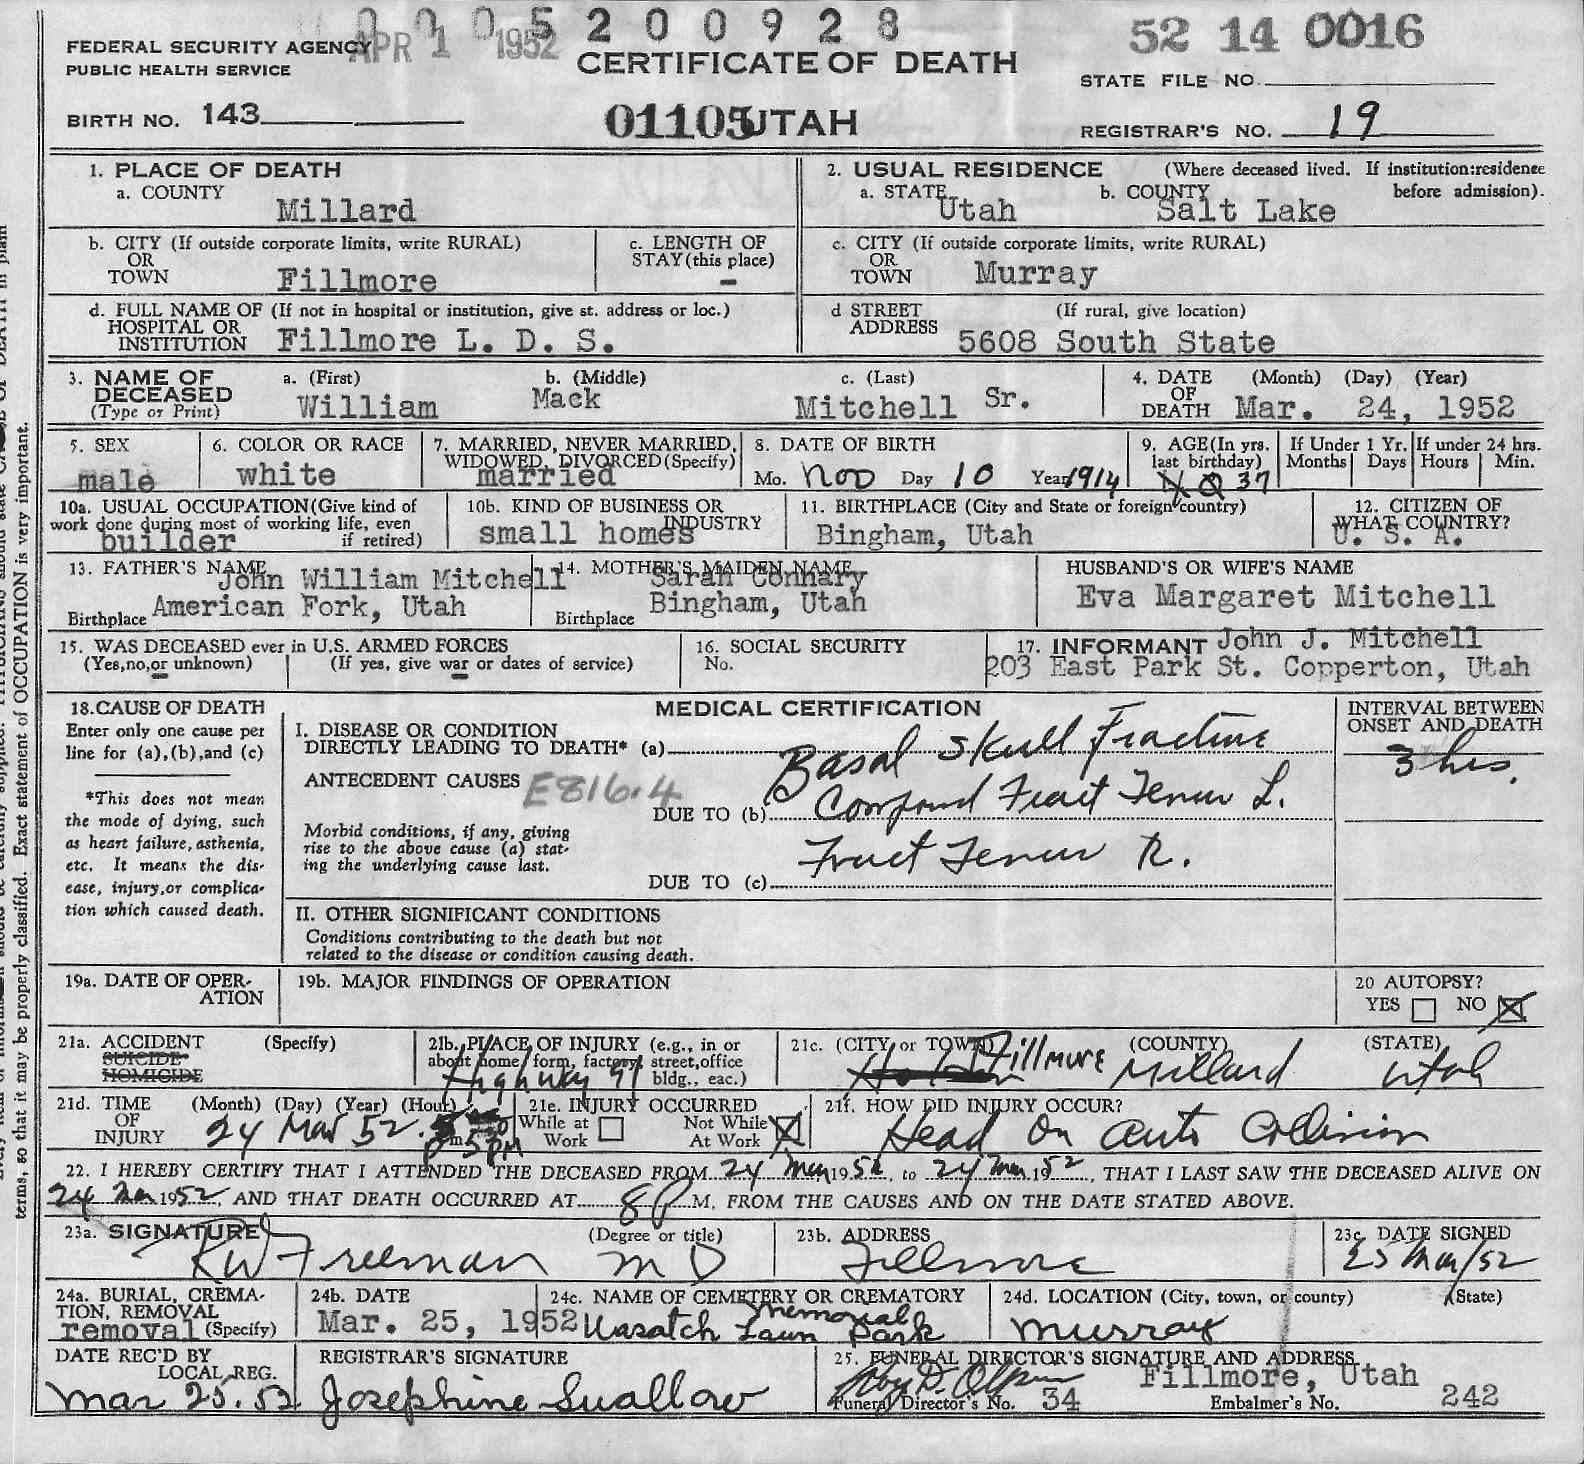 0 0 0 5 2 0 0 9 2 8
APR 1 1952
52 14 0016
FEDERAL SECURITY AGENCY
PUBLIC HEALTH SERVICE
CERTIFICATE OF DEATH
STATE FILE NO.
BIRTH NO. 143
01105 UTAH
REGISTRAR'S NO. 19
1. PLACE OF DEATH
a. COUNTY
Millard
2. USUAL RESIDENCE (Where deceased lived. If institution:residence before admission).
a. STATE Utah b. COUNTY Salt Lake
b. CITY (If outside corporate limits, write RURAL)
OR
TOWN Fillmore
c. LENGTH OF
STAY (this place)
-
c. CITY (If outside corporate limits, write RURAL)
OR
TOWN Murray
d. FULL NAME OF (If not in hospital or institution, give st. address or loc.)
HOSPITAL OR
INSTITUTION Fillmore L. D. S.
d STREET (If rural, give location)
ADDRESS 5608 South State
3. NAME OF DECEASED (Type or Print)
a. (First) b. (Middle) c. (Last)
William Mack Mitchell Sr.
4. DATE OF DEATH (Month) (Day) (Year)
Mar. 24, 1952
5. SEX
male
6. COLOR OR RACE
white
7. MARRIED, NEVER MARRIED,
WIDOWED, DIVORCED (Specify)
married
8. DATE OF BIRTH
Mo. Nov Day 10 Year 1914
9. AGE (In yrs.
last birthday)
37
If Under 1 Yr.
Months Days
If under 24 hrs.
Hours Min.
10a. USUAL OCCUPATION (Give kind of
work done during most of working life, even
if retired)
builder
10b. KIND OF BUSINESS OR
INDUSTRY
small homes
11. BIRTHPLACE (City and State or foreign country)
Bingham, Utah
12. CITIZEN OF
WHAT COUNTRY?
U. S. A.
13. FATHER'S NAME
John William Mitchell
Birthplace American Fork, Utah
14. MOTHER'S MAIDEN NAME
Sarah Connary
Birthplace Bingham, Utah
HUSBAND'S OR WIFE'S NAME
Eva Margaret Mitchell
15. WAS DECEASED ever in U.S. ARMED FORCES
(Yes,no,or unknown) (If yes, give war or dates of service)
- -
16. SOCIAL SECURITY
No.
17. INFORMANT John J. Mitchell
203 East Park St. Copperton, Utah
18. CAUSE OF DEATH
Enter only one cause per
line for (a),(b),and (c)
*This does not mean
the mode of dying, such
as heart failure, asthenia,
etc. It means the dis-
ease, injury,or complica-
tion which caused death.
MEDICAL CERTIFICATION
INTERVAL BETWEEN
ONSET AND DEATH
I. DISEASE OR CONDITION
DIRECTLY LEADING TO DEATH* (a) Basal Skull Fracture
3 hrs.
ANTECEDENT CAUSES E816.4
DUE TO (b) Compound Fract Femur L.
Morbid conditions, if any, giving
rise to the above cause (a) stat-
ing the underlying cause last.
Fract Femur R.
DUE TO (c)
II. OTHER SIGNIFICANT CONDITIONS
Conditions contributing to the death but not
related to the disease or condition causing death.
19a. DATE OF OPER-
ATION
19b. MAJOR FINDINGS OF OPERATION
20 AUTOPSY?
YES NO X
21a. ACCIDENT (Specify)
SUICIDE
HOMICIDE
21b. PLACE OF INJURY (e.g., in or
about home, form, factory, street,office
bldg., eac.)
Highway 91
21c. (CITY or TOWN) (COUNTY) (STATE)
Fillmore Millard Utah
21d. TIME OF INJURY (Month) (Day) (Year) (Hour)
24 Mar 52. 5 PM
21e. INJURY OCCURRED
While at Work Not While At Work X
21f. HOW DID INJURY OCCUR?
Head On auto Collision
22. I HEREBY CERTIFY THAT I ATTENDED THE DECEASED FROM 24 Mar 1952, to 24 Mar 1952, THAT I LAST SAW THE DECEASED ALIVE ON
24 Mar 1952, AND THAT DEATH OCCURRED AT 8 P M. FROM THE CAUSES AND ON THE DATE STATED ABOVE.
23a. SIGNATURE (Degree or title)
RW Freeman M D
23b. ADDRESS
Fillmore
23c. DATE SIGNED
25 Mar/52
24a. BURIAL, CREMA-
TION, REMOVAL
removal (Specify)
24b. DATE
Mar. 25, 1952
24c. NAME OF CEMETERY OR CREMATORY
Wasatch Lawn Memorial Park
24d. LOCATION (City, town, or county) (State)
Murray
DATE REC'D BY
LOCAL REG.
Mar 25. 52
REGISTRAR'S SIGNATURE
Josephine Swallow
25. FUNERAL DIRECTOR'S SIGNATURE AND ADDRESS
Fillmore, Utah
Funeral Director's No. 34 Embalmer's No. 242
terms, so that it may be properly classified. Exact statement of OCCUPATION is very important.